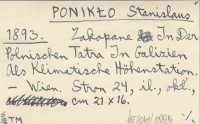 PONIKŁO Stanislaus
1893. Zakopane In Der
Polnischen Tatra In Galizien
Als Klimatische Höhenstation.
– Wien. Stron 24, il., rkl.,
cm 21 x 16.
TM